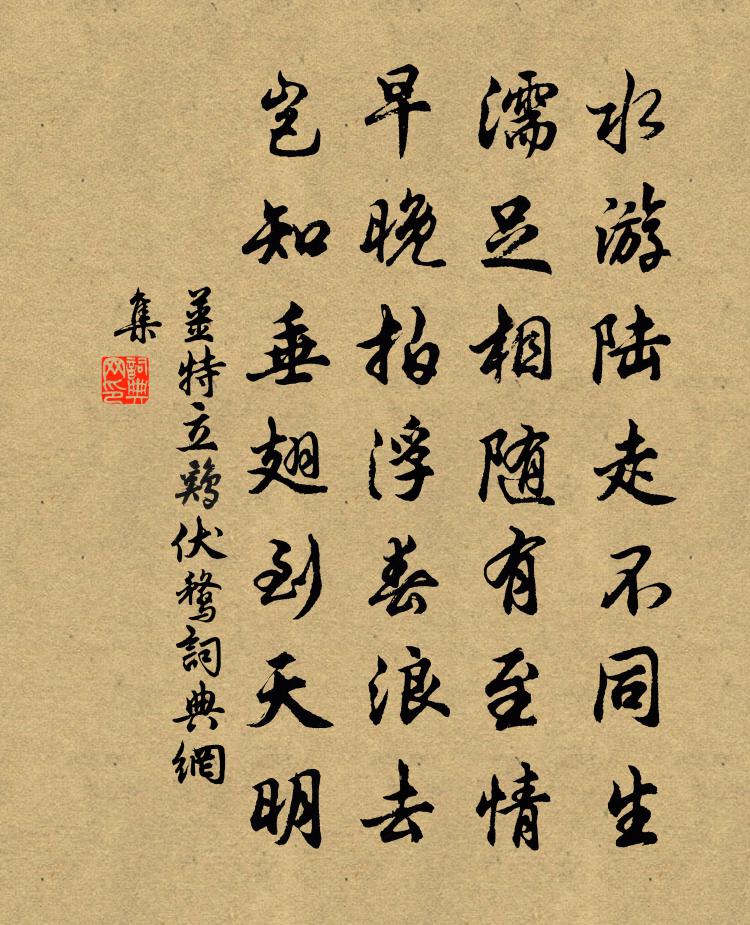 水游陆走不同生
濡足相随有至情
早晚拍浮春浪去
岂知垂翅到天明
薑特立鷄伏鶩詞典網
集
詞典
网印